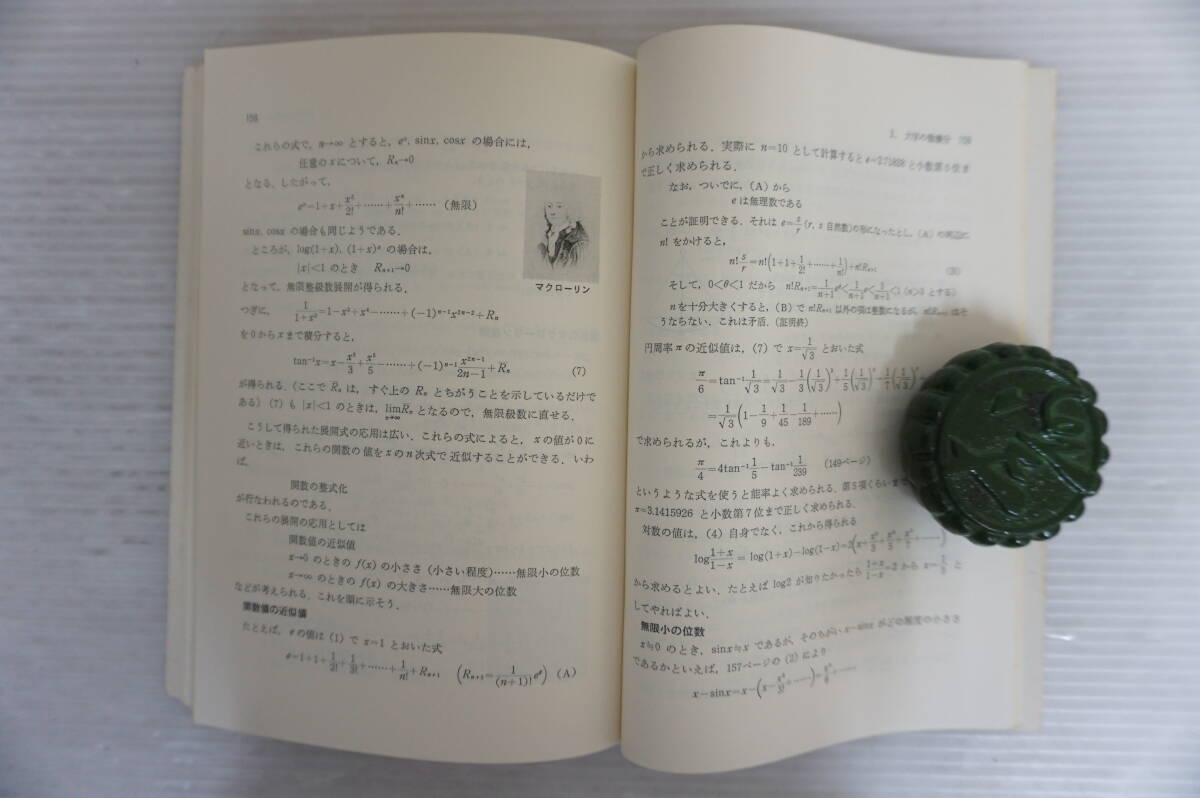 158
これらの式で，n→∞ とすると，eˣ, sinx, cosx の場合には，
任意の x について，Rₙ→0
となる．したがって，
eˣ=1+x+x²/2!+……+xⁿ/n!+……（無限）
sinx, cosx の場合も同じようである．
ところが，log(1+x)，(1+x)ᵅ の場合は，
|x|<1 のとき Rₙ₊₁→0
となって，無限整級数展開が得られる．
マクローリン
つぎに，1/(1+x²)=1−x²+x⁴−……+(−1)ⁿ⁻¹x²ⁿ⁻²+Rₙ
を 0 から x まで積分すると，
tan⁻¹x=x−x³/3+x⁵/5−……+(−1)ⁿ⁻¹x²ⁿ⁻¹/(2n−1)+Rₙ (7)
が得られる．（ここで Rₙ は，すぐ上の Rₙ とちがうことを示しているだけで
ある）(7) も |x|<1 のときは，lim Rₙ となるので，無限級数に直せる．
n→∞
こうして得られた展開式の応用は広い．これらの式によると，x の値が 0 に
近いときは，これらの関数の値を x の n 次式で近似することができる．いわ
ば，
関数の整式化
が行なわれるのである．
これらの展開の応用としては
関数値の近似値
x→0 のときの f(x) の小ささ（小さい程度）……無限小の位数
x→∞ のときの f(x) の大きさ……無限大の位数
などが考えられる．これを順に示そう．
関数値の近似値
たとえば，e の値は (1) で x=1 とおいた式
e=1+1+1/2!+1/3!+……+1/n!+Rₙ₊₁ (Rₙ₊₁=1/(n+1)! eᶿ) (A)
159
から求められる．実際に n=10 として計算すると e=2.71828 と小数第5位ま
で正しく求められる．
なお，ついでに，(A) から
e は無理数である
ことが証明できる．それは e=s/r (r, s 自然数) の形になったとし，(A) の両辺に
n! をかけると，
n! s/r=n!(1+1+1/2!+……+1/n!)+n!Rₙ₊₁
そして，0<θ<1 だから n!Rₙ₊₁=1/(n+1) eᶿ<1/(n+1) e<3/(n+1)<1 (n>3 とする)
n を十分大きくすると，(B) で n!Rₙ₊₁ 以外の項は整数になるが，n!Rₙ₊₁ はそ
うならない．これは矛盾．（証明終）
円周率 π の近似値は，(7) で x=1/√3 とおいた式
π/6=tan⁻¹1/√3=1/√3−1/3(1/√3)³+1/5(1/√3)⁵−1/7(1/√3)⁷+
=1/√3(1−1/9+1/45−1/189+……)
で求められるが，これよりも，
π/4=4tan⁻¹1/5−tan⁻¹1/239 (149ページ)
というような式を使うと能率よく求められる．第5項くらいまで
π=3.1415926 と小数第7位まで正しく求められる．
対数の値は，(4) 自身でなく，これから得られる
log(1+x)/(1−x)=log(1+x)−log(1−x)=2(x+x³/3+x⁵/5+x⁷/7+……)
から求めるとよい．たとえば log2 が知りたかったら (1+x)/(1−x)=2 から x=1/3 と
してやればよい．
無限小の位数
x≒0 のとき，sinx≒x であるが，そのちがい x−sinx がどの程度の小ささ
であるかといえば，157ページの (2) により
x−sinx=x−(x−x³/3!+……)=x³/6+……